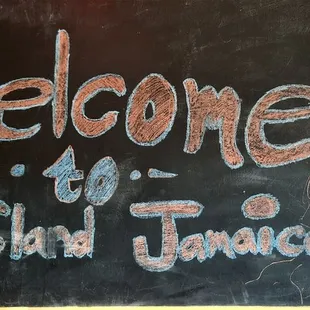 Welcome
to
Island Jamaica